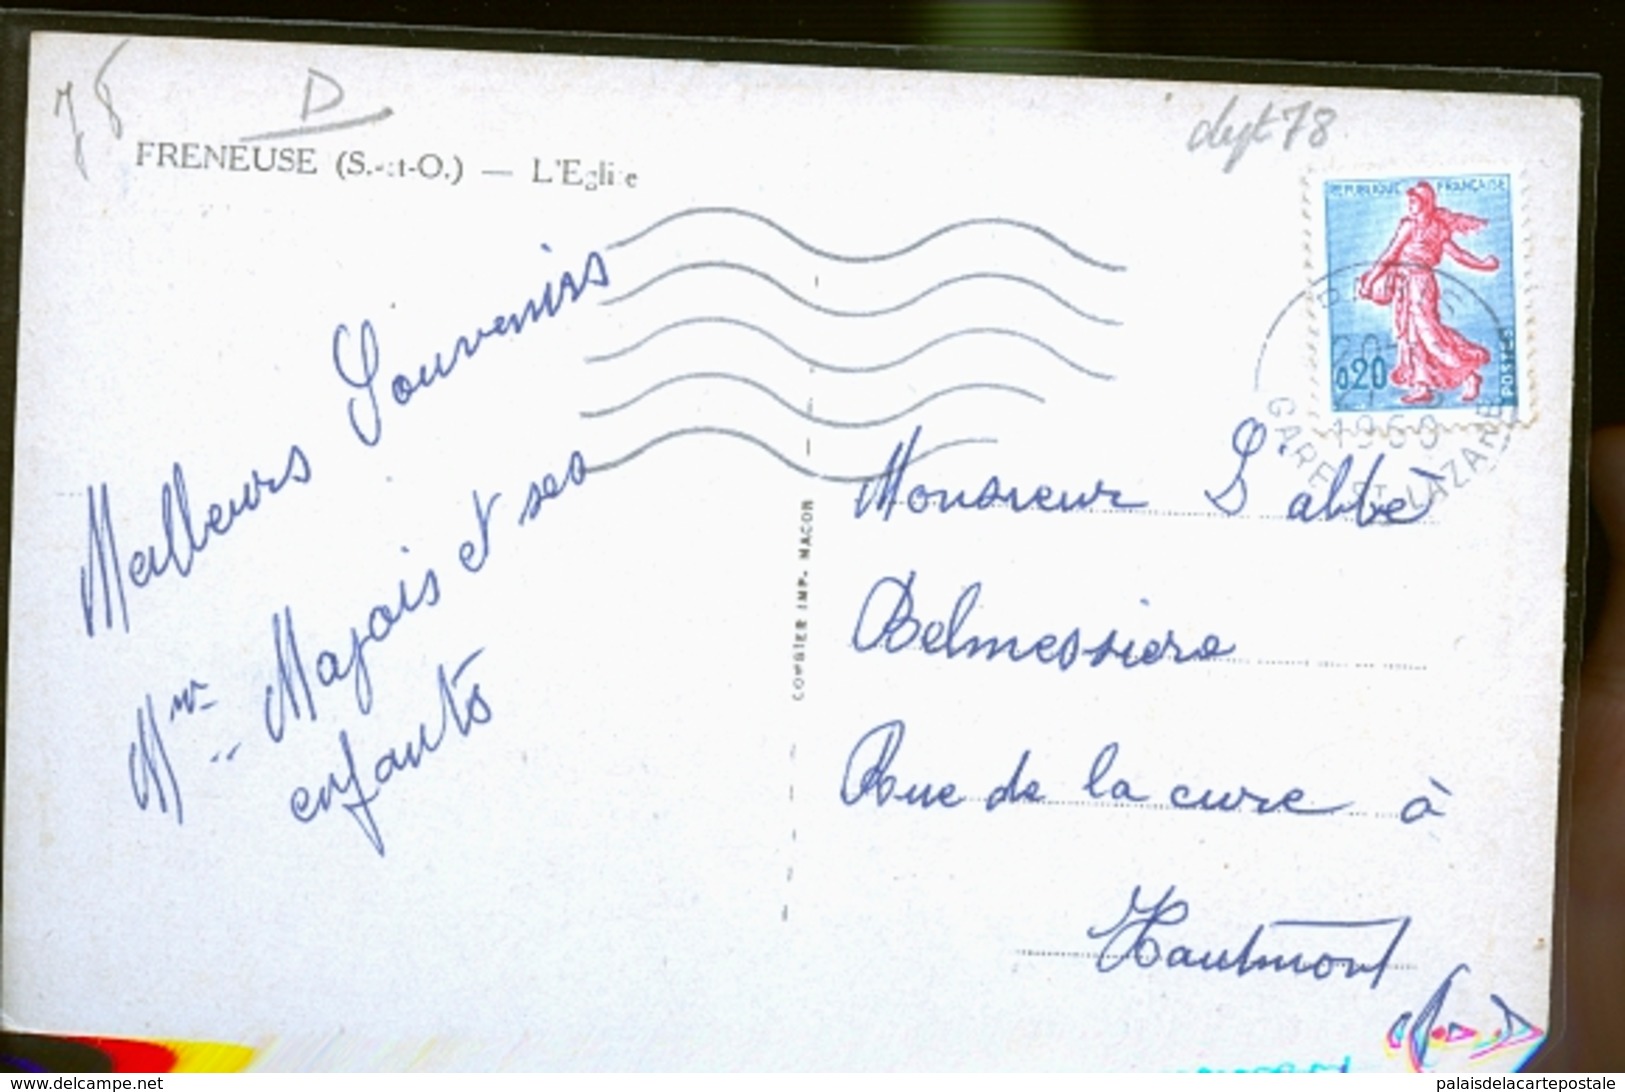 78
D
FRENEUSE (S.-et-O.) — L'Eglise
dept 78
REPUBLIQUE FRANÇAISE
0,20
POSTES
GARE ST LAZARE
Meilleurs Souvenirs
Mme Majois et ses
enfants
COMBIER IMP. MACON
Monsieur L'abbé
Delmessiere
Rue de la cure à
Hautmont
www.delcampe.net
palaisdelacartepostale